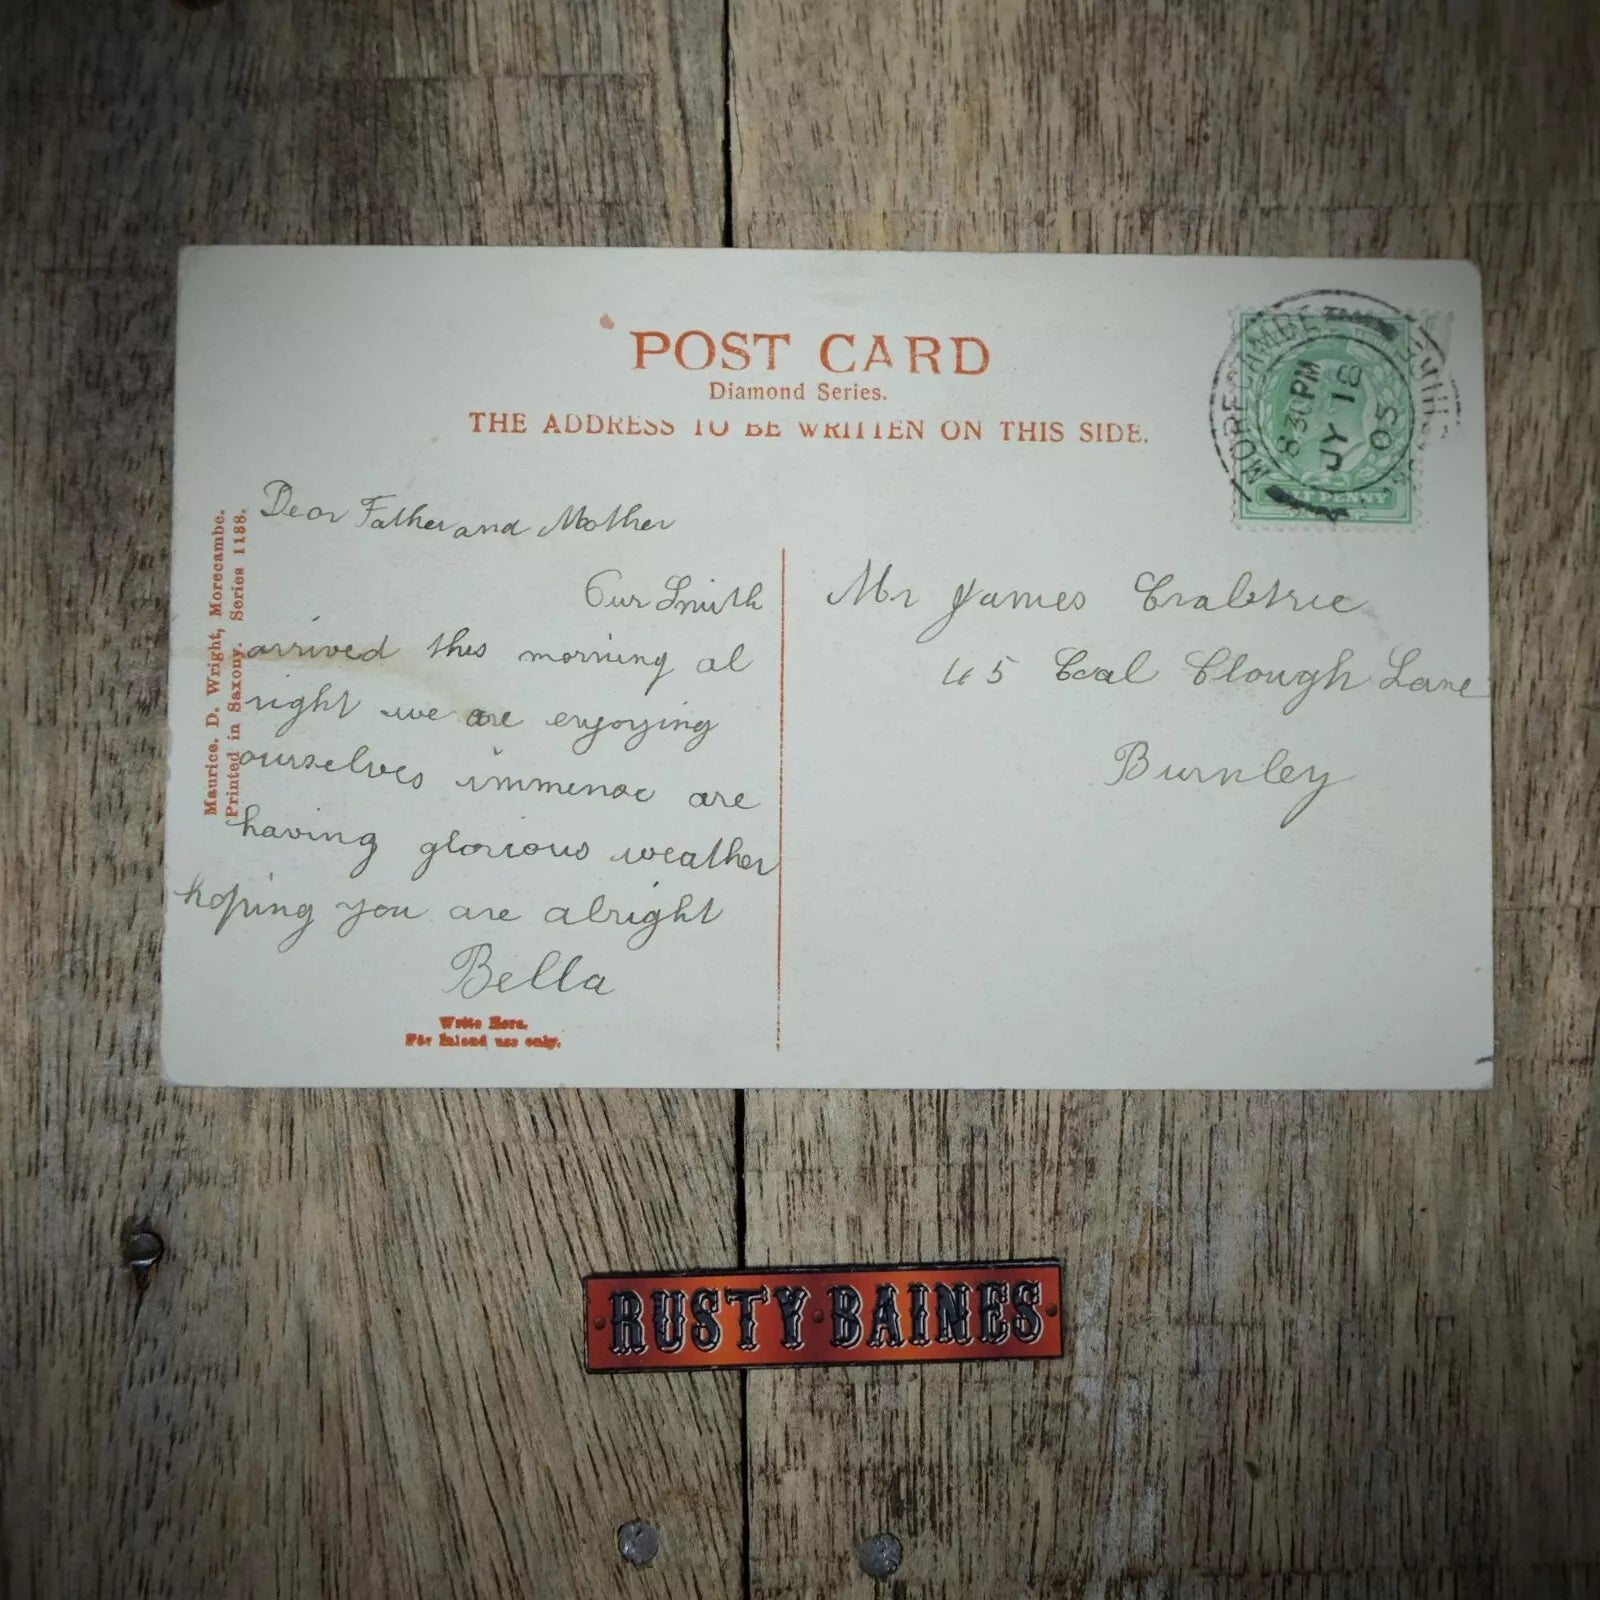 POST CARD
Diamond Series.
THE ADDRESS TO BE WRITTEN ON THIS SIDE.
MORECAMBE
8 30 PM
JY 18
05
HALF PENNY
Maurice. D. Wright, Morecambe.
Printed in Saxony. Series 1188.
Dear Father and Mother
Our Smith
arrived this morning al
right we are enjoying
ourselves immense are
having glorious weather
hoping you are alright
Bella
Write Here.
For Inland use only.
Mr James Crabtree
45 Coal Clough Lane
Burnley
RUSTY·BAINES